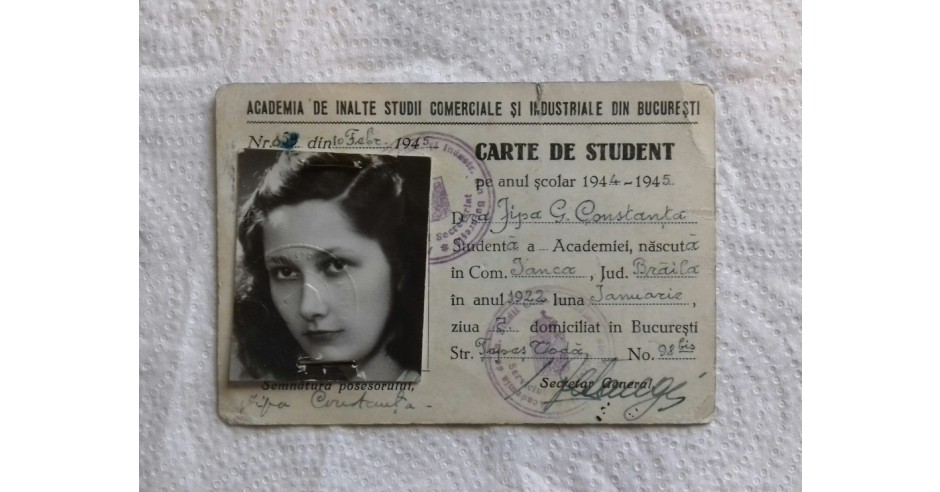 ACADEMIA DE INALTE STUDII COMERCIALE ȘI INDUSTRIALE DIN BUCUREȘTI
Nr. 859 din 10 Febr. 1945
CARTE DE STUDENT
pe anul școlar 1944-1945
D-ra Jipa G. Constanța
Studentă a Academiei, născută
în Com. Ianca, Jud. Brăila
în anul 1922 luna Ianuarie,
ziua 7 domiciliat in București
Str. Țepeș Vodă, No. 98 bis
Semnătura posesorului,
Secretar General,
Jipa Constanța